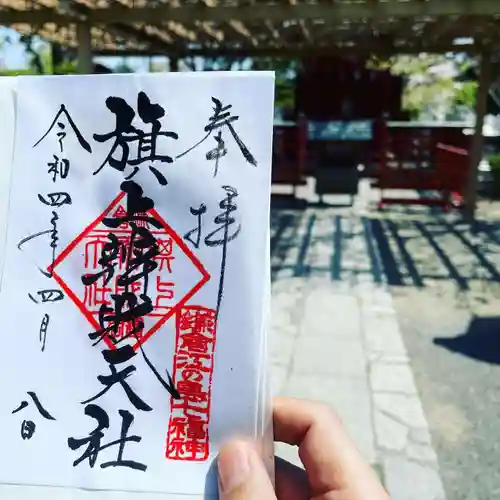 奉拝
旗上辨財天社
鎌倉江の島七福神
令和四年四月
八日